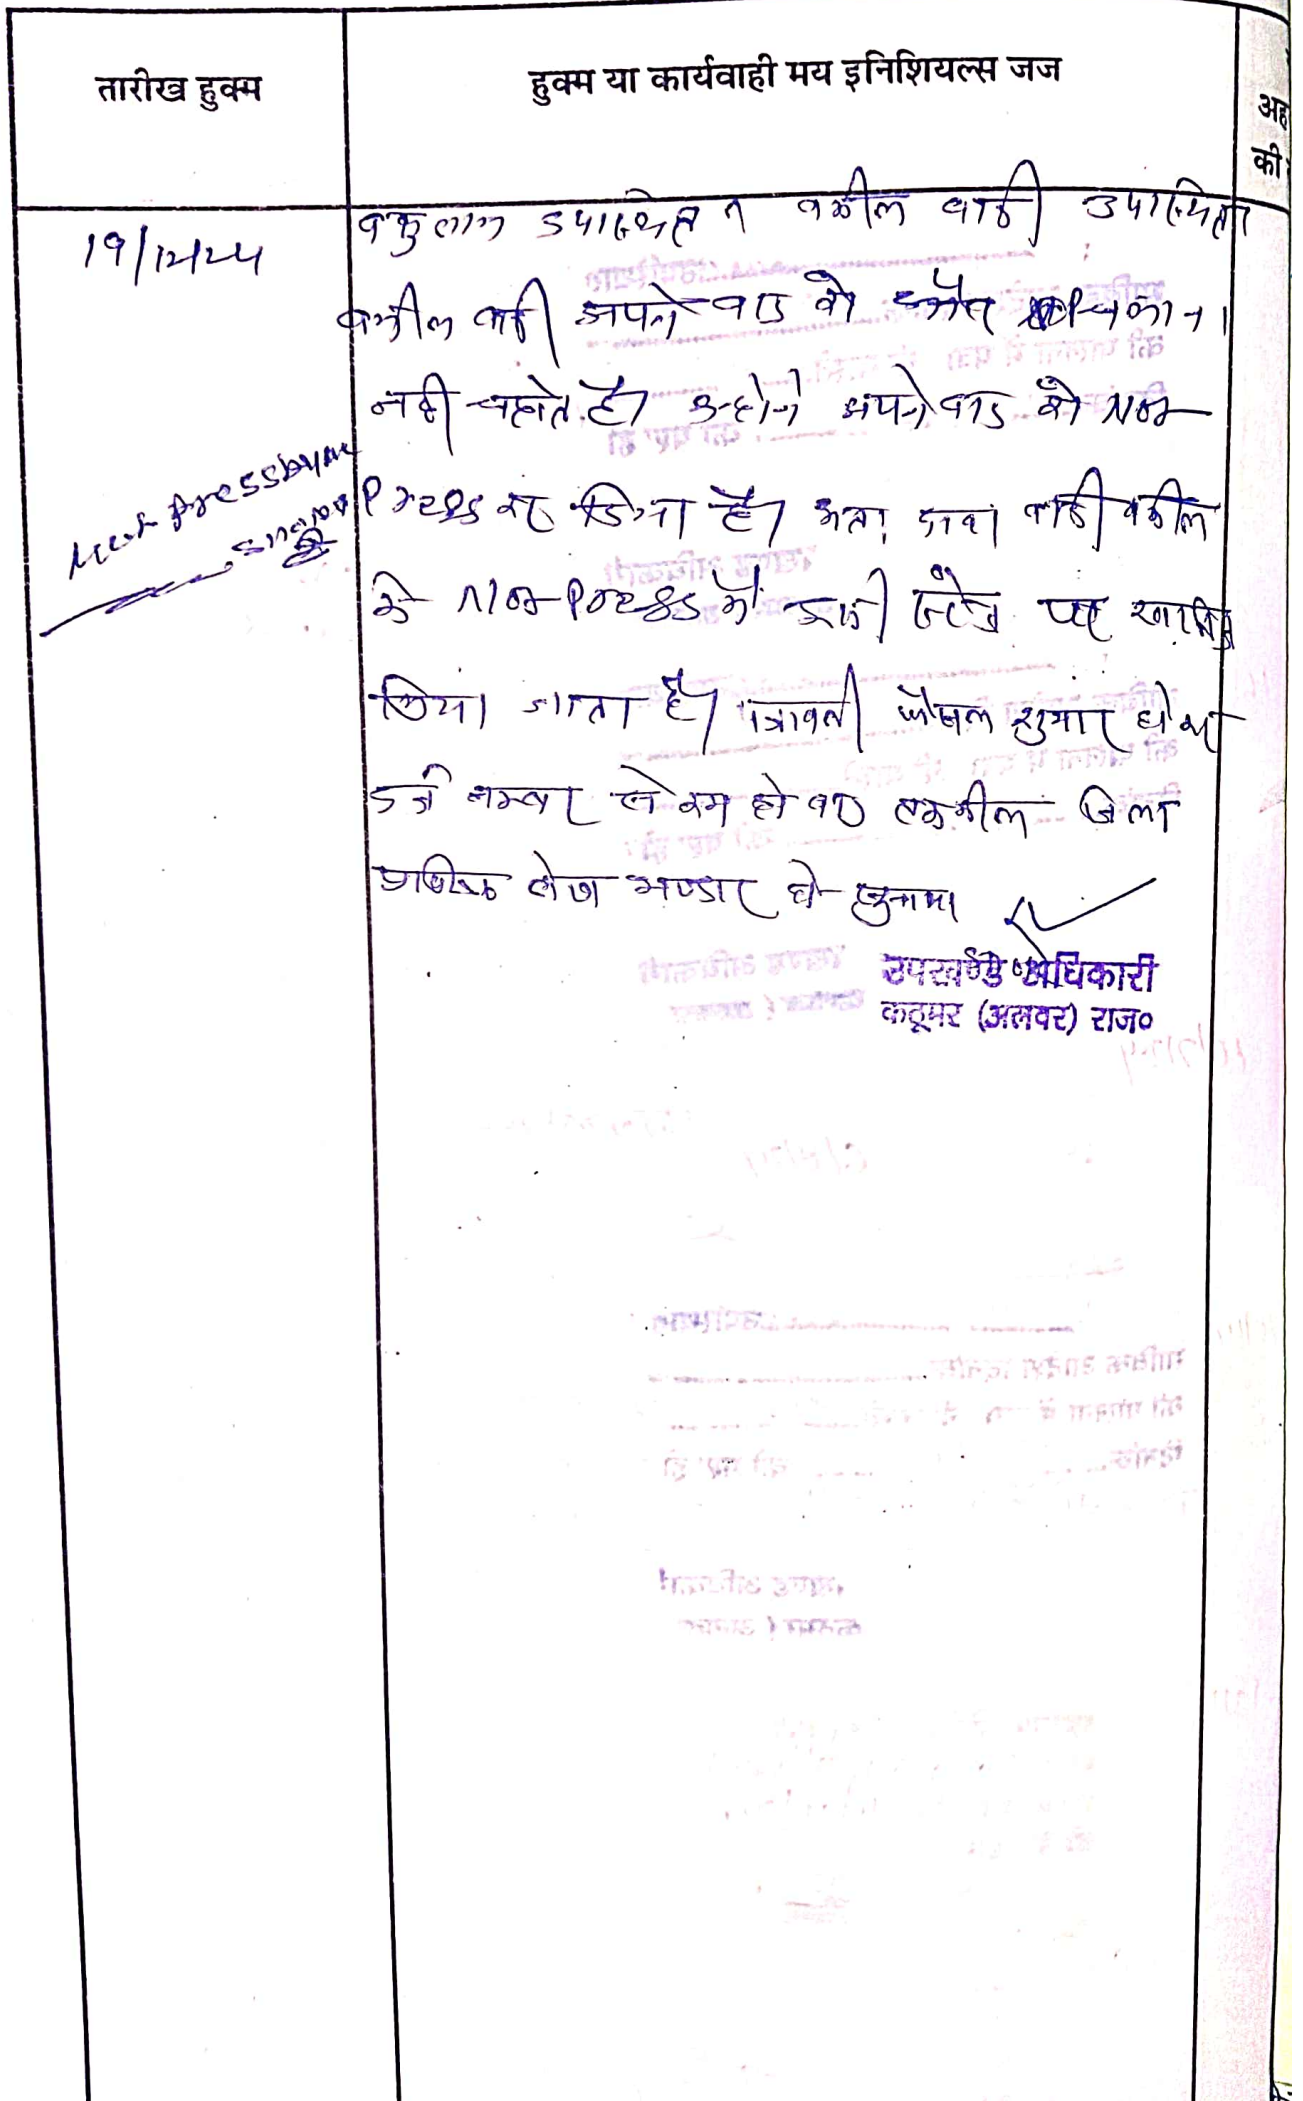 तारीख हुक्म
हुक्म या कार्यवाही मय इनिशियल्स जज
अह
की
19/12/24
वकुलान उपास्थित । वकील वादी उपास्थित
वकील वादी अपने वाद को और चलाना
नही चाहते है। उन्होने अपने वाद को Not
Press कर दिया है। अतः दावा वादी वकील
के Not-Press में इसी स्टेज पर खारिज
किया जाता है। पत्रावली फैसल शुमार होकर
दर्ज नम्बर से कम हो बाद तकमील जिला
लेखा भण्डार हो
Not press by me
उपखण्ड अधिकारी
कठूमर (अलवर) राज०